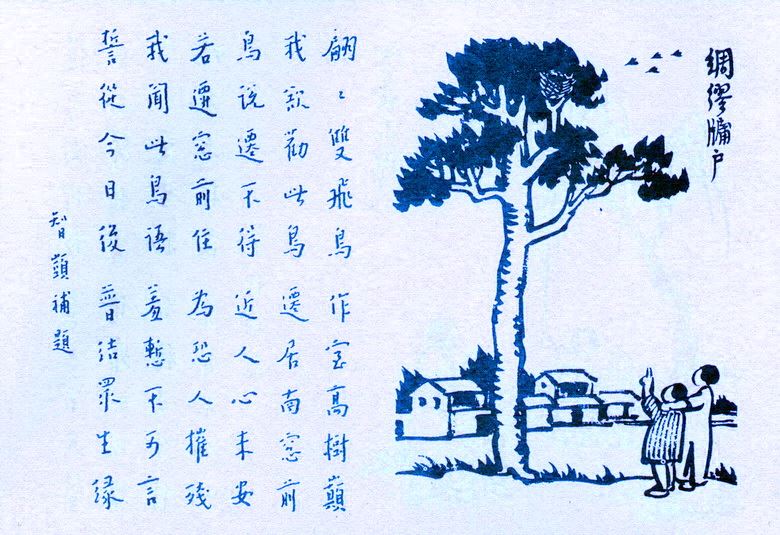 綢繆牖户
翩〻雙飛鳥 作室高樹巔
我欲勸此鳥 遷居南窓前
鳥說遷不得 近人心未安
若遷窓前住 為恐人摧殘
我聞此鳥語 羞慙不可言
誓從今日後 普結眾生緣
智顗補題